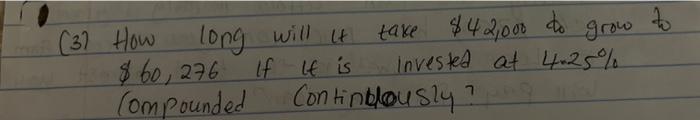 (3) How long will it take $42,000 to grow to
$60,276 if it is invested at 4.25%
Compounded Continuously?